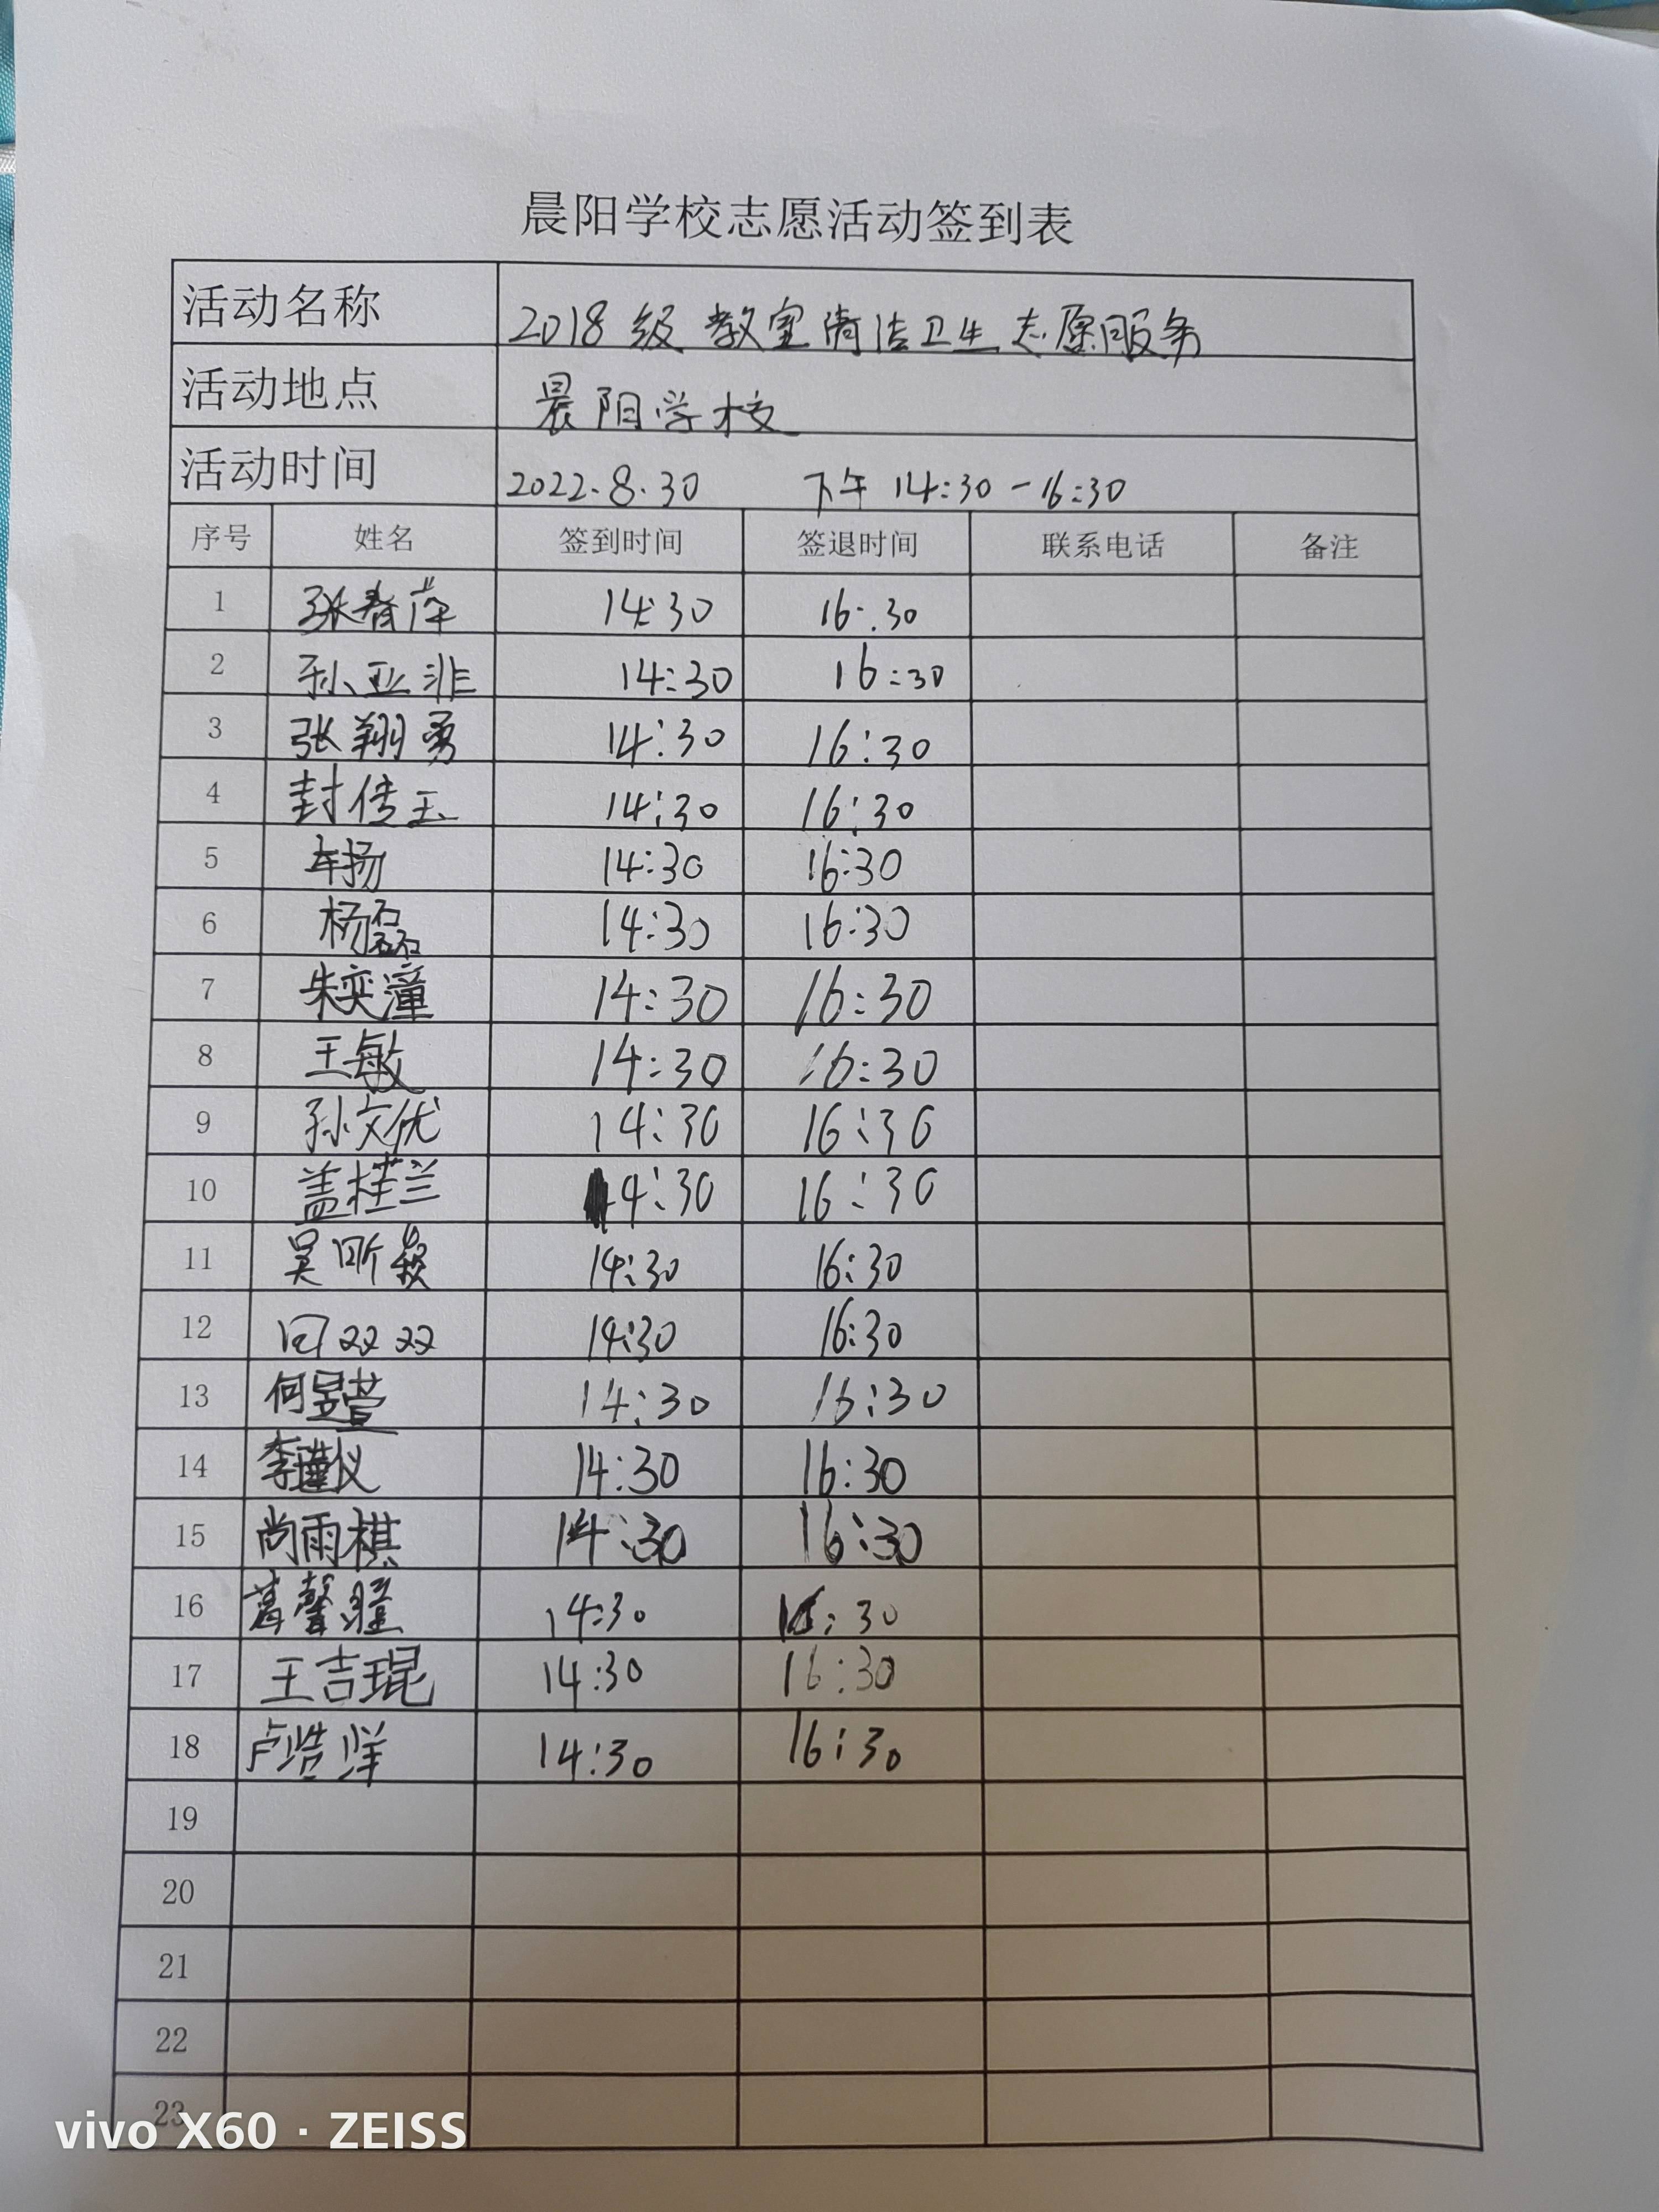 晨阳学校志愿活动签到表
活动名称 2018级教室清洁卫生志愿服务
活动地点 晨阳学校
活动时间 2022.8.30 下午 14:30-16:30
序号 姓名 签到时间 签退时间 联系电话 备注
1 张春萍 14:30 16:30
2 孙亚非 14:30 16:30
3 张翔勇 14:30 16:30
4 封传玉 14:30 16:30
5 车扬 14:30 16:30
6 杨磊 14:30 16:30
7 朱奕潼 14:30 16:30
8 王敏 14:30 16:30
9 孙文优 14:30 16:30
10 盖桂兰 14:30 16:30
11 吴昕 14:30 16:30
12 闫双双 14:30 16:30
13 何昱萱 14:30 16:30
14 李瑾仪 14:30 16:30
15 尚雨棋 14:30 16:30
16 馨瞳 14:30 16:30
17 王吉琨 14:30 16:30
18 卢浩洋 14:30 16:30
19
20
21
22
23
vivo X60 · ZEISS